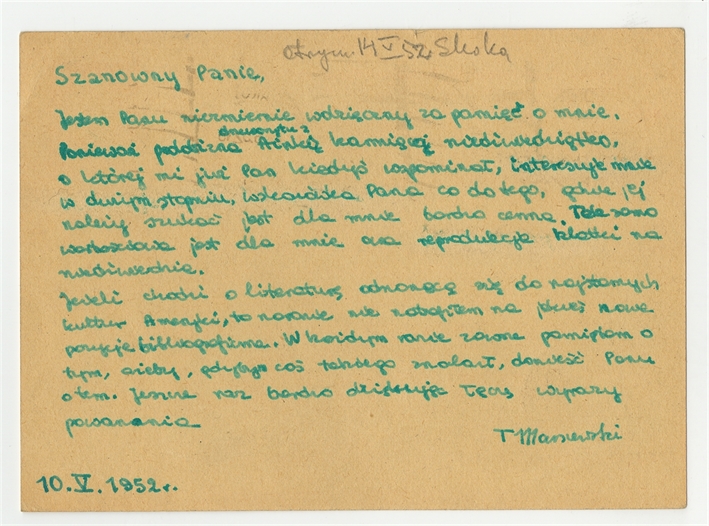 otrzym. 14 V 52r.
Szanowny Panie,
Jestem Panu niezmiernie wdzięczny za pamięć o mnie.
Ponieważ podobizna kamiącej niedźwiedziątko,
o której mi już Pan kiedyś wspominał, interesuje mnie
w dużym stopniu, wskazówka Pana co do tego, gdzie jej
należy szukać jest dla mnie bardzo cenna. Tak samo
wartościowa jest dla mnie oraz reprodukcja klatki na
niedźwiedzie.
Jeżeli chodzi o literaturę odnoszącą się do najstarszych
kultur Ameryki, to na razie nie natrafiłem na jakieś nowe
pozycje bibliograficzne. W każdym razie zawsze pamiętam o
tym, ażeby, gdybym coś takiego znalazł, donieść Panu
o tem. Jeszcze raz bardzo dziękuję łączę wyrazy
poważania
T Marszewski
10. V. 1952r.